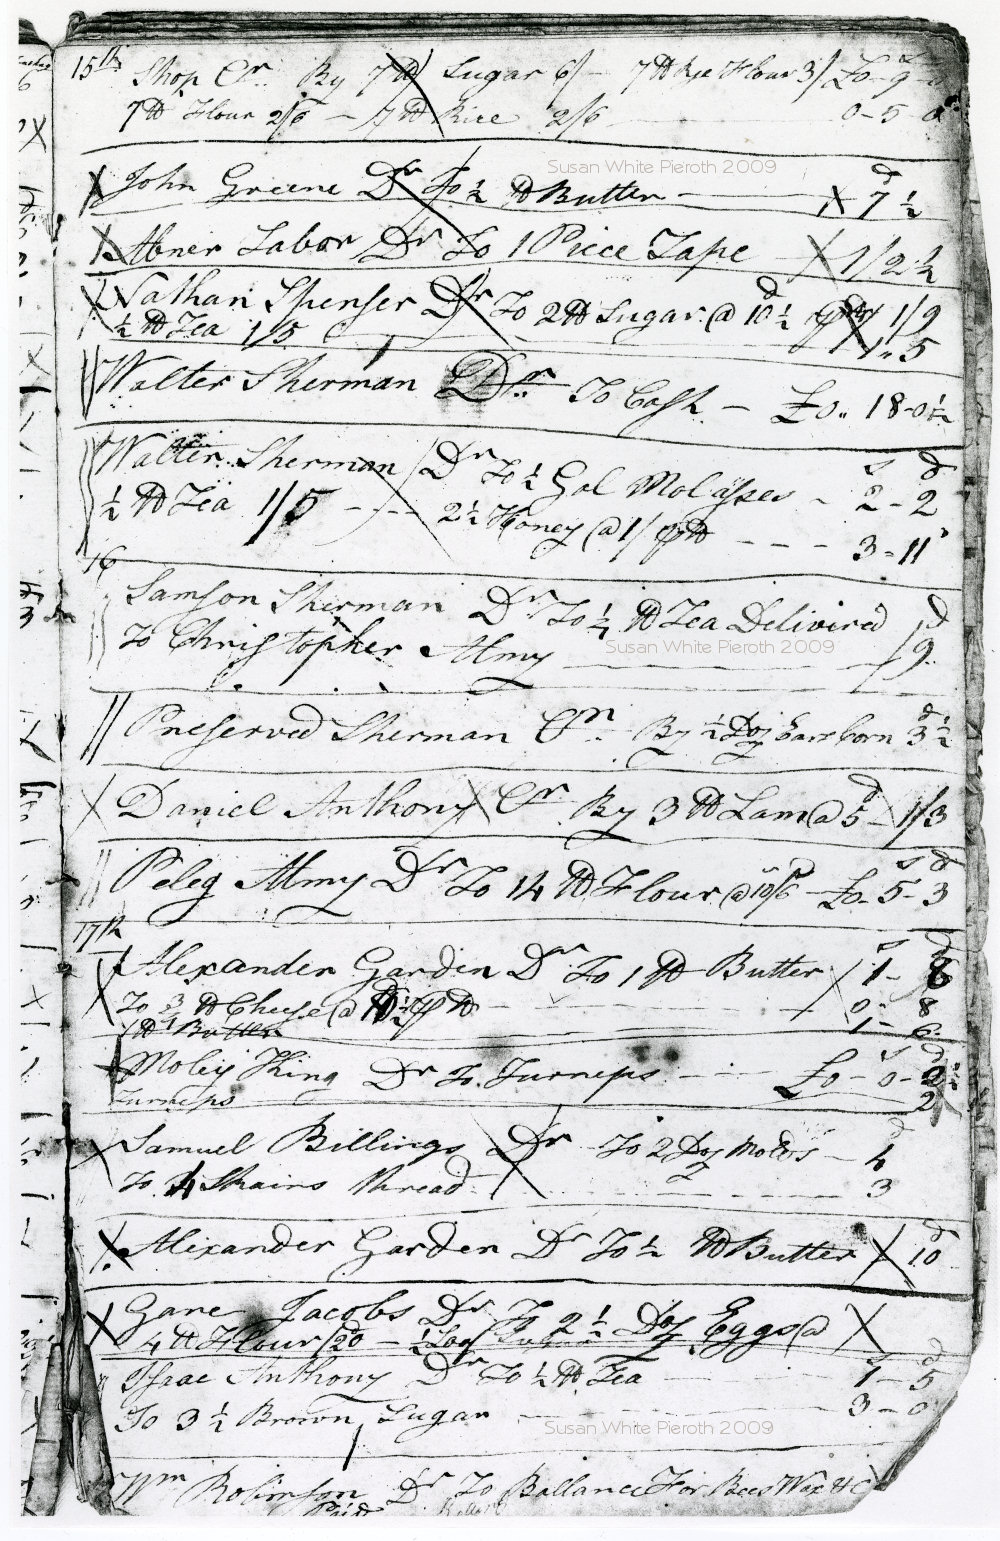 15th Shop Cr. By 7 ℔ Sugar 6/ — 7 ℔ Rye Flour 3/ £0-9-
7 ℔ Flour 2/6 — 7 ℔ Rice 2/6 0-5-0
Susan White Pieroth 2009
John Greene Dr To ½ ℔ Butter — d 7½
Abner Tabor Dr To 1 Piece Tape 1/2½
Nathan Spenser Dr To 2 ℔ Sugar @ 10½ d 1/9
½ ℔ Tea 1/5 1"5
Walter Sherman Dr To Cash — £0" 18-0½
Walter Sherman Dr To ½ Gal Molasses - s 2 - d 2
½ ℔ Tea 1/5 - - - 2½ Honey @ 1/ ℔ - - - 3-11
16
Samson Sherman Dr To ¼ ℔ Tea Delivired d
To Christopher Almy /9
Susan White Pieroth 2009
Preserved Sherman Cr By ½ Doz Ears Corn d 3½
Daniel Anthony Cr By 3 ℔ Lam @ 5 d - 1/3
Peleg Almy Dr To 14 ℔ Flour @ £0- s 5- d 3
17th
Alexander Garden Dr To 1 ℔ Butter s 1 - d 8
To ¾ ℔ Cheese @ ℔ 0" 8
1 ℔ Butter 1 - 6
Mosey King Dr To Turneps £0 - s 0 - d
Turneps 2
Samuel Billings Dr To 2 Doz d
To 4 Skains thread 3
Alexander Garden Dr To ½ ℔ Butter d 10
Gane Jacobs Dr To 2½ Doz Eggs @
4 ℔ Flour /20 - ½ Loaf
Isaac Anthony Dr To ½ ℔ Tea s 1 - d 5
To 3½ Brown Sugar 3 - 0
Susan White Pieroth 2009
Wm Robinson Dr To Ballance For Bees Wax &C
Paid